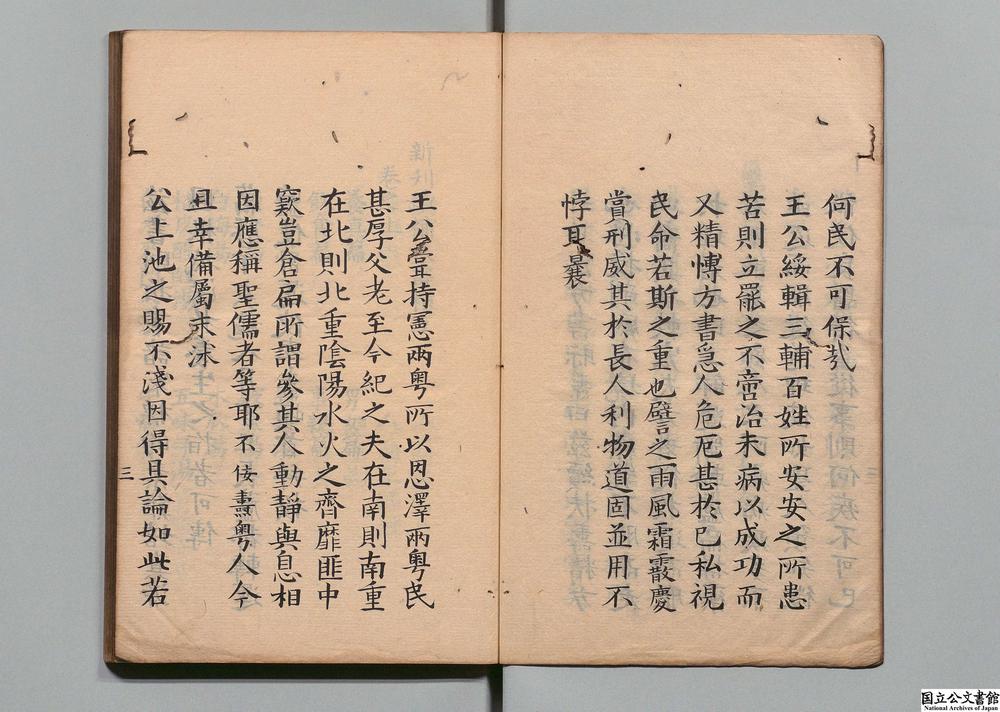 何民不可保哉
王公綏輯三輔百姓所安安之所患
苦則立罷之不啻治未病以成功而
又精慱方書急人危厄甚於已私視
民命若斯之重也譬之雨風霜霰慶
賞刑威其於長人利物道固並用不
悖耳曩
王公嘗持憲兩粤所以恩澤兩粤民
甚厚父老至今紀之夫在南則南重
在北則北重陰陽水火之齊靡匪中
窾豈倉扁所謂參其人動靜與息相
因應稱聖儒者等耶不佞燾粤人今
且幸備屬末沫
公上池之賜不淺因得具論如此若
三
国立公文書館
National Archives of Japan